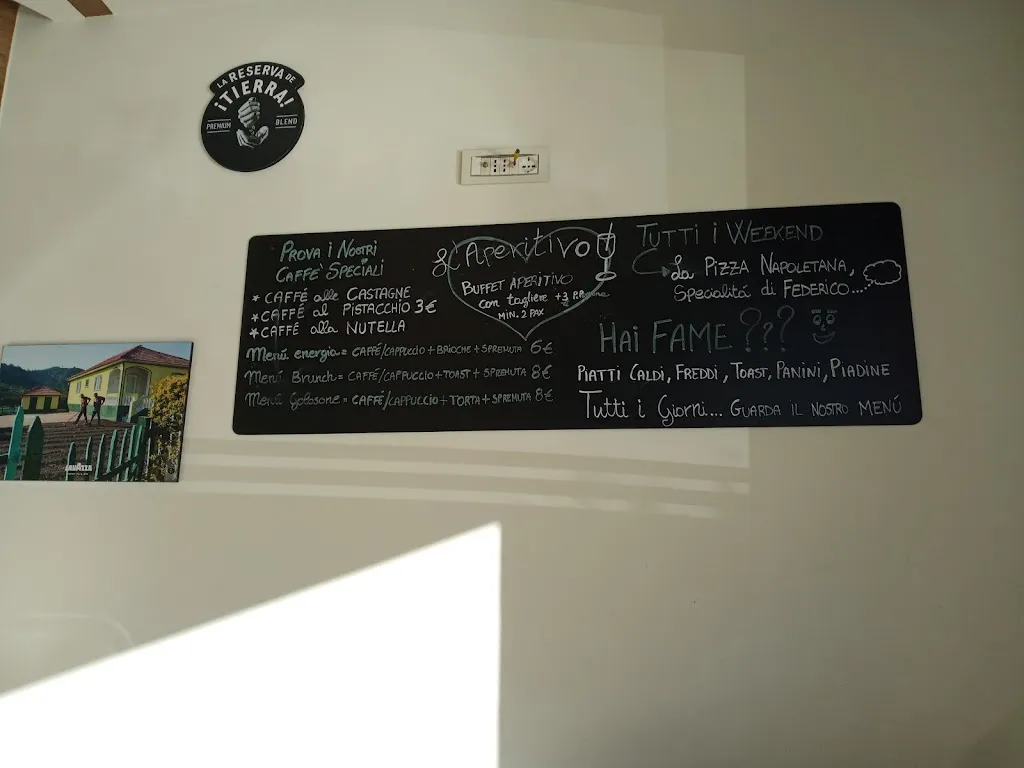 LA RESERVA DE
¡TIERRA!
PREMIUM BLEND
PROVA i NOSTRI
CAFFE' SPECIALI
* CAFFÉ alle CASTAGNE
* CAFFÉ al PISTACCHIO 3€
* CAFFÉ alla NUTELLA
Menú energia = CAFFÉ/CAPPUCCIO + BRIOCHE + SPREMUTA 6€
Menú Brunch = CAFFÉ/CAPPUCCIO + TOAST + SPREMUTA 8€
Menú Golosone = CAFFÉ/CAPPUCCIO + TORTA + SPREMUTA 8€
l'Aperitivo
BUFFET APERITIVO
con tagliere +3
MIN. 2 PAX
TUTTI i WEEKEND
La PIZZA NAPOLETANA,
Specialitá di FEDERICO....
HAI FAME ???
PIATTI CALDI, FREDDI, TOAST, PANINI, PIADINE
Tutti i Giorni... GUARDA IL NOSTRO MENÚ
LAVAZZA